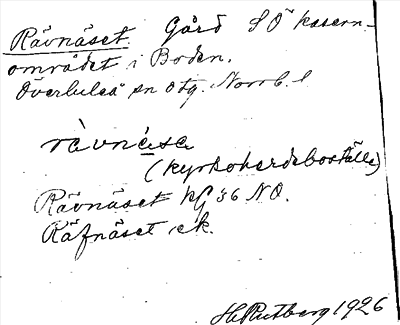 Rävnäset. Gård SÖ kasern-
området i Boden.
Överluleå sn otg. Norrb. l
ràvnä́sa
(kyrkoherdeboställe)
Rävnäset kG 36 NO.
Räfnäset ek.
H Rutberg 1926